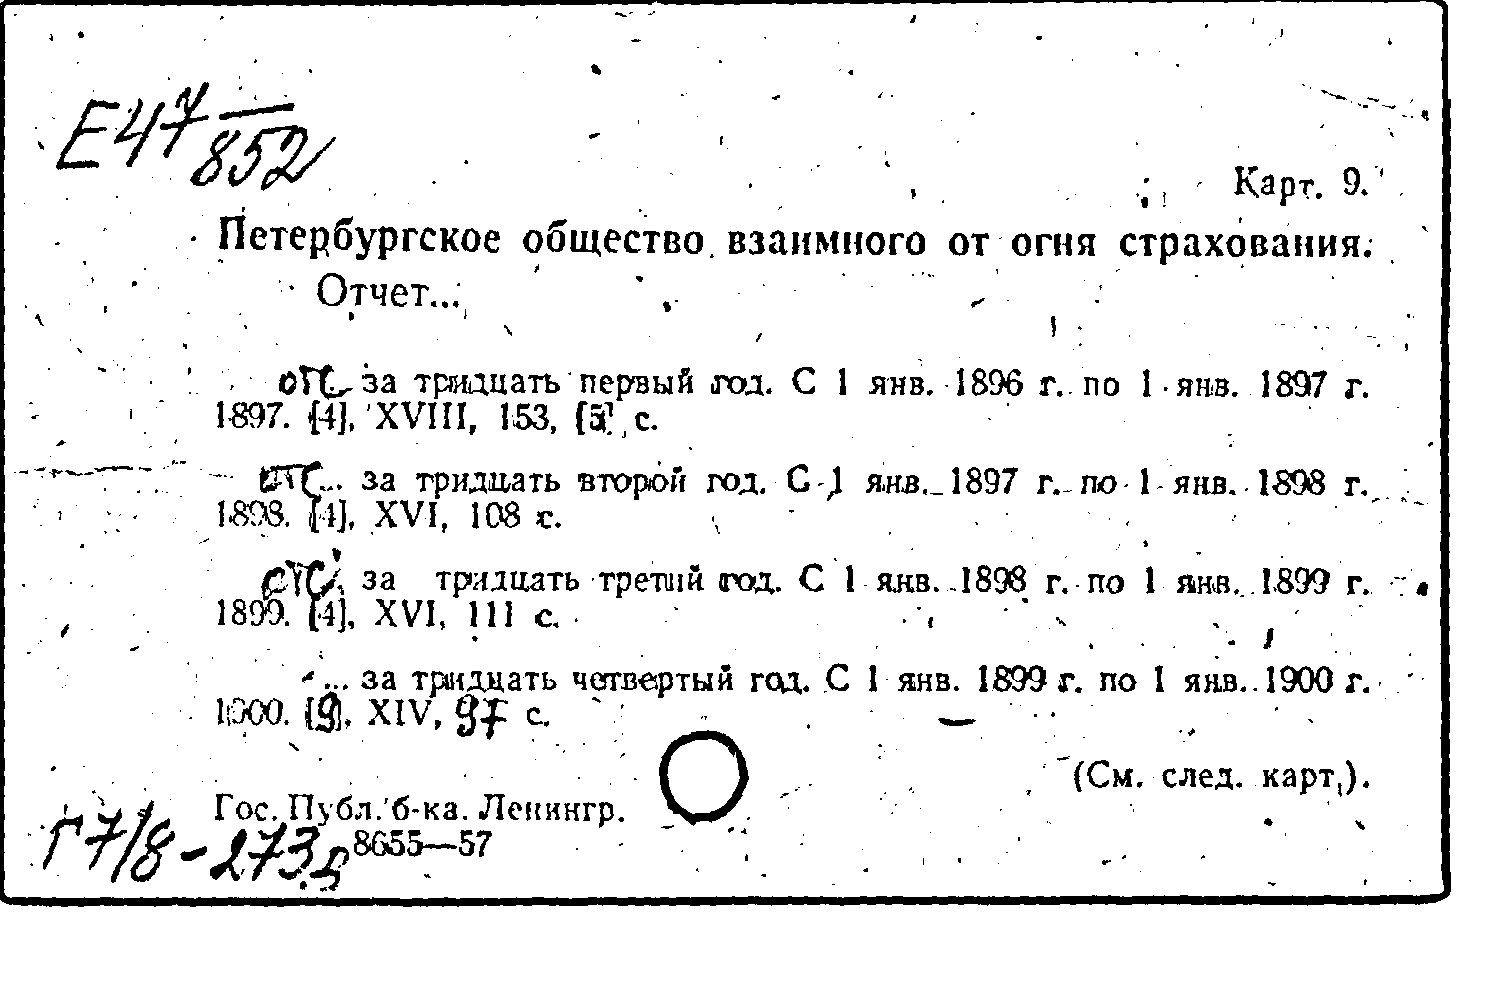 Е47/852
Карт. 9.
Петербургское общество взаимного от огня страхования.
Отчет...
отс за тридцать первый год. С 1 янв. 1896 г. по 1 янв. 1897 г.
1897. [4], XVIII, 153, [5] с.
отс... за тридцать второй год. С 1 янв. 1897 г. по 1 янв. 1898 г.
1898. [4], XVI, 108 с.
отс. за тридцать третий год. С 1 янв. 1898 г. по 1 янв. 1899 г.
1899. [4], XVI, 111 с.
... за тридцать четвертый год. С 1 янв. 1899 г. по 1 янв. 1900 г.
1900. [9], XIV, 97 с.
(См. след. карт.).
Гос. Публ. б-ка. Ленингр.
Г7/8-273 8655—57